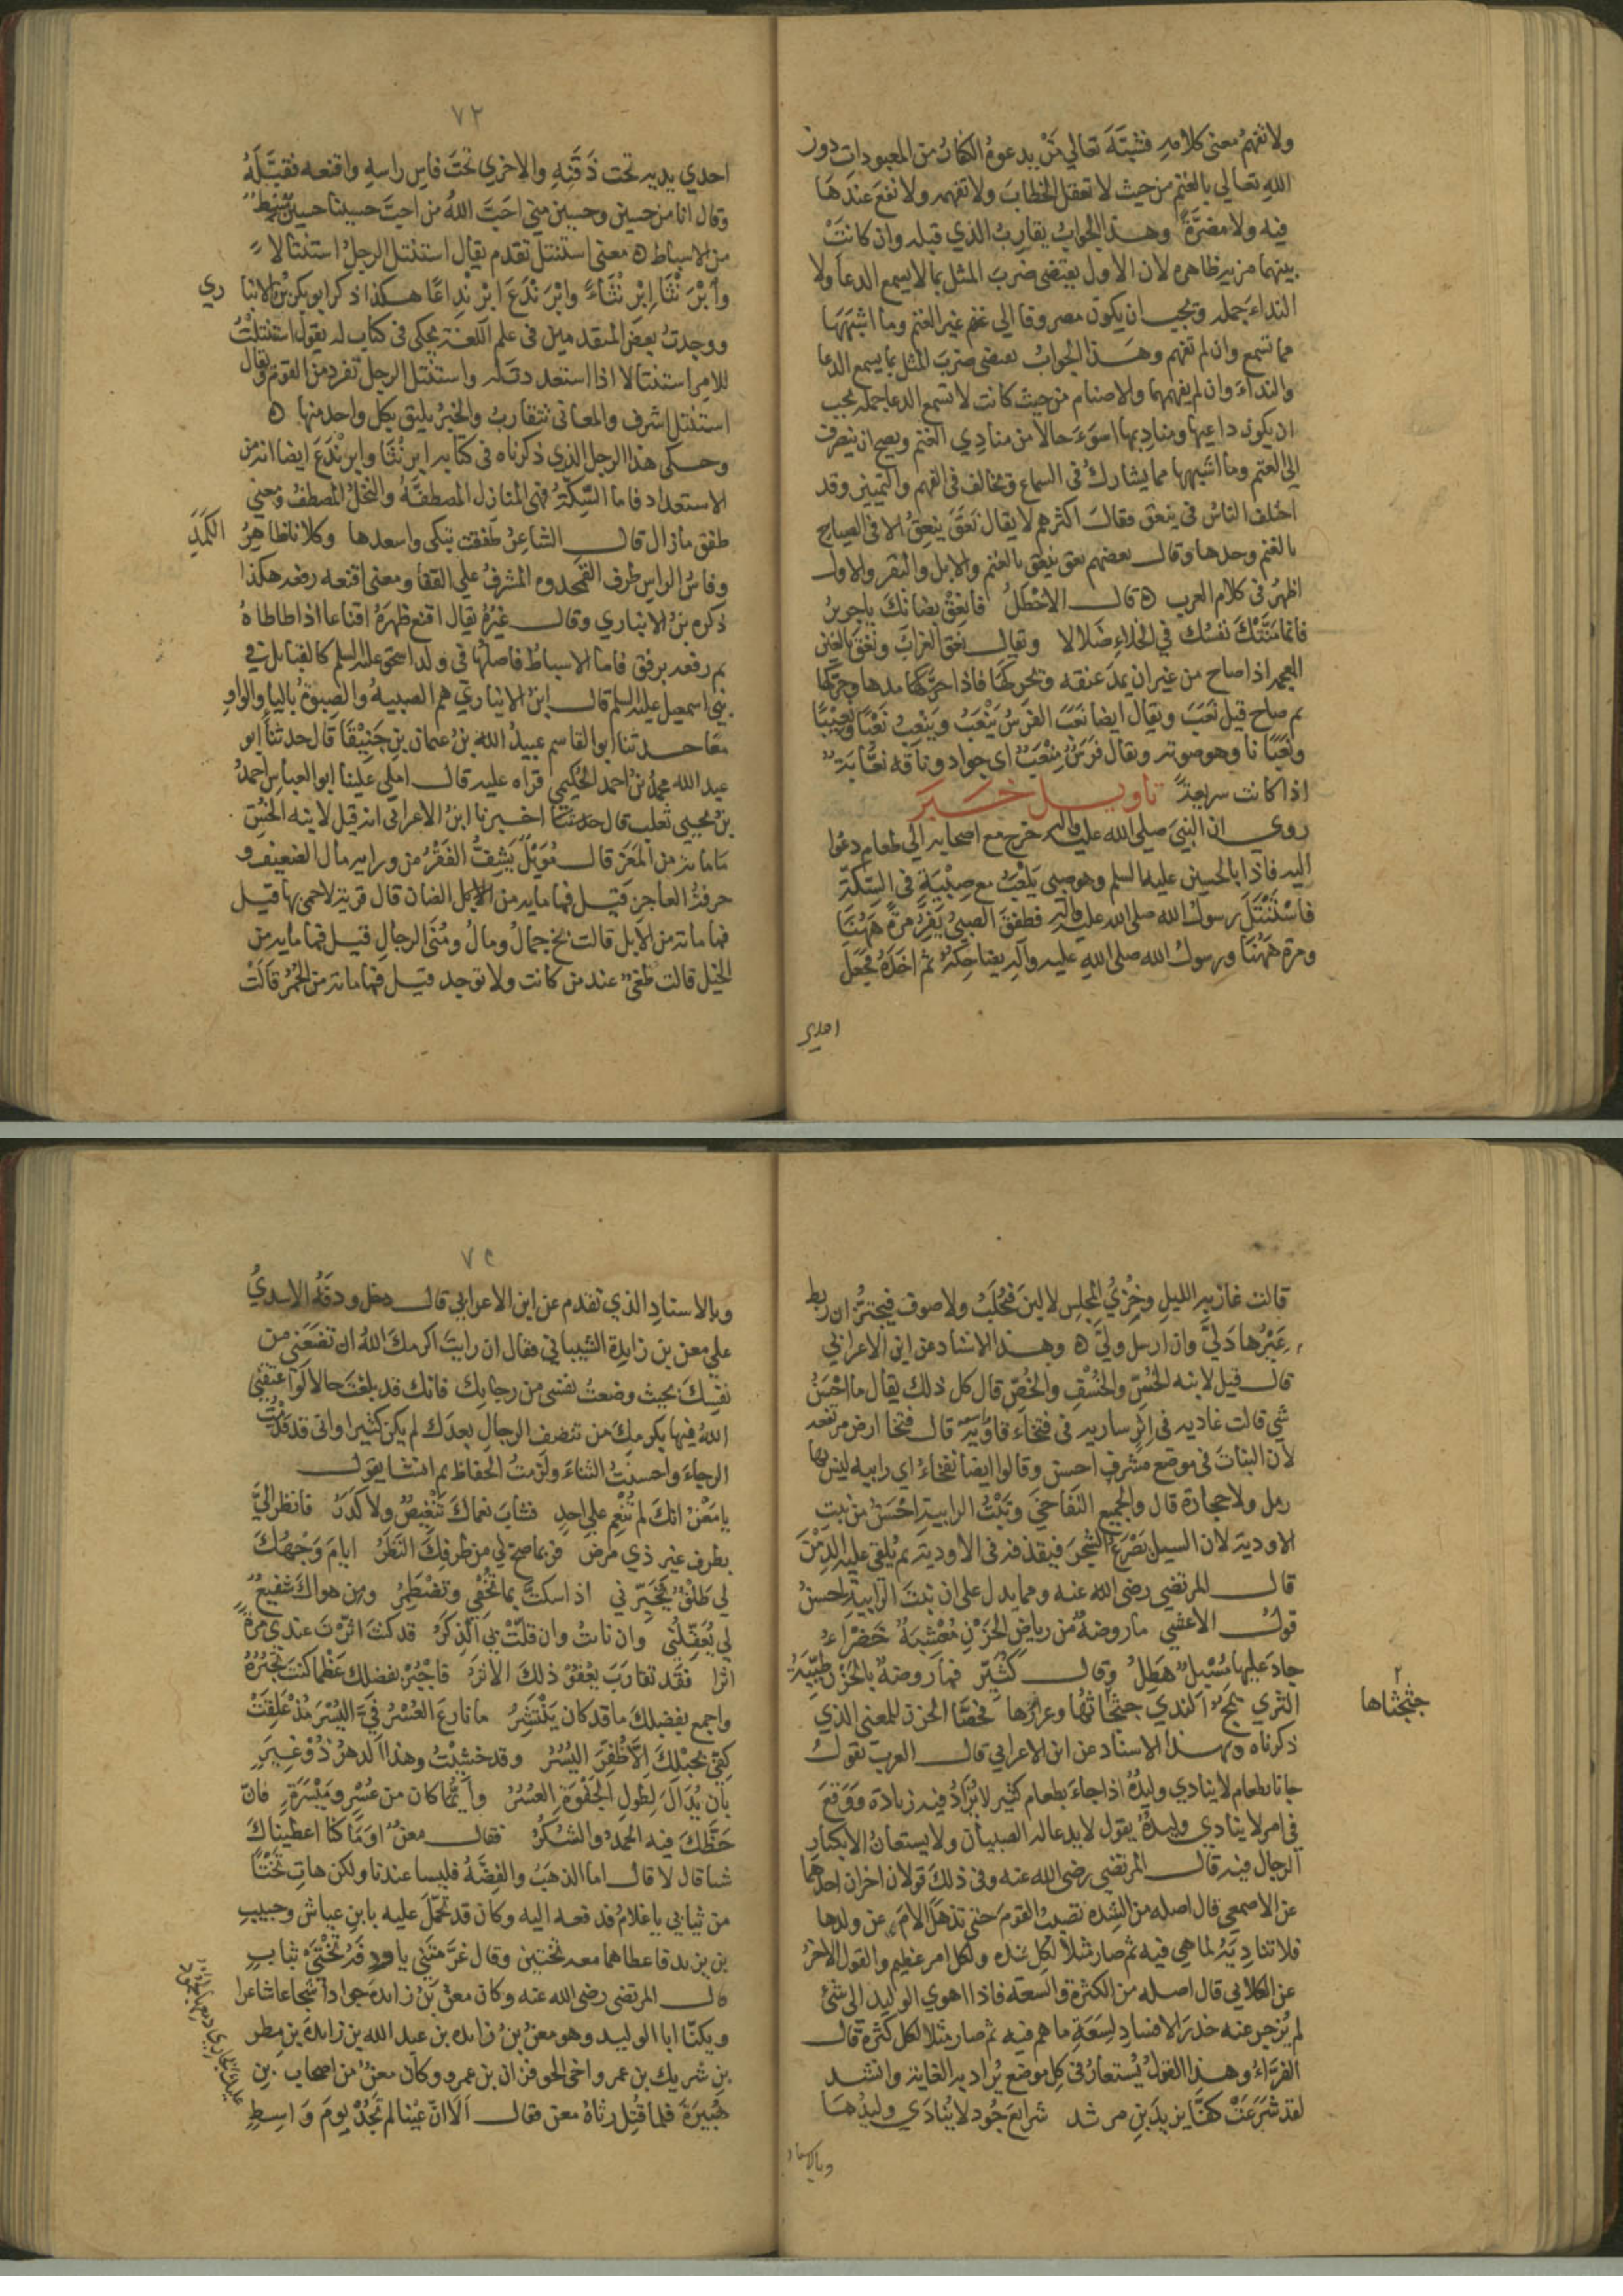 ولا تفهم معنى كلامه فشبَّه تعالي مَنْ يدعوهُ الكفارُ من المعبودات دون
اللهِ تعالي بالغنم من حيث لا تعقل الخطابَ ولا تفهمه ولا نفعَ عندَهَا
فيه ولا مضرَّةً وهذا الجوابُ يقارِبُ الذي قبله وان كانتْ
بينهما مزية ظاهره لان الاول يقتضى ضربَ المثل بما لا يسمع الدعا ولا
النداءَ جمله ويجب ان يكون مصروفا الي غنم غير الغنم وما اشبَهَهَا
مما تسمع وان لم تفهم وهذا الجوابُ يقتضى ضربَ المثل بما يسمع الدعا
والنداءَ وان لم يفهمهما والاصنام من حيث كانت لا تسمع الدعا جمله يجب
ان يكون داعيها ومناديها اسوَءَ حالا من منادِي الغنم ويصح ان يصرف
الي الغنم وما اشبهها مما يشارك في السماع ويخالف في الفهم والتمييز وقد
اختلف الناسُ في ينعق فقالَ اكثرهم لا يقال نَعَقَ ينعِقُ الا في الصياح
بالغنم وحدها وقال بعضهم نعق ينعق بالغنم والابل والبقر والاول
اظهرُ في كلام العرب ه قال الاخطلُ فانعِقْ بضانكَ يا جريرُ
فانما مَنَّتْكَ نفسُك في الخلاءِ ضَلالا ويقال نَعَق الغرابُ ونَغَقَ بالغين
المعجمه اذا صاح من غير ان يمدَّ عنقه ويحركها فاذا حرَّكها مدها وحركها
ثم صاح قيل نَعَبَ ويقال ايضا نَعَبَ الفرسُ يَنْعَبُ ويَنعِبُ نَعْبًا ونَعِيْبًا
ونَعَبَانا وهو صوته ويقال فرَسٌ مِنْعَبٌ اي جواد وناقه نعَّابَة
اذا كانت سريعةً تأويل خبر
روي ان النبيَ صلي الله عليه وآله خرج مع اصحابه الي طعام دعُوا
اليه فاذا بالحسين عليه السلم وهو صبي يَلْعَبُ مع صِبْيَةٍ في السِّكَّةِ
فاسْتَنْتَلَ رسولُ الله صلي الله عليه وآله فطفقَ الصبيُّ يَفِرُّ مرةً هَهُنَا
ومرة هَهُنَا ورسولُ الله صلي اللهِ عليه وآله يضاحِكُهُ ثم اخَذَهُ فجَعَلَ
احدي
٧٢
احدي يديه تحت ذَقَنِهِ والاخري تحتَ فاسِ راسِهِ واقنعه فقبَّلَهُ
وقال انا من حسينٍ وحسين مني احَبَّ اللهُ من احبَّ حسينا حسين سِبْطٌ
من الاسباط ه معنى استنتل تقدم يقال استنتل الرجلُ استنتالاً
وابْرَنْثَا اِبْرِنْثاءً وابْرَنْذَعَ ابْرِنْذِاعًا هكذا ذكر ابو بكر بنُ الانبا ري
ووجدتُ بعضَ المتقدمين في علم اللغة يحكى في كتاب له يقول استنتلتُ
للامر استنتالا اذا استعددتَ له واستنتل الرجل تفرد من القوم ويقال
استنتل اشرف والمعاني تتقاربُ والخبرُ يليق بكل واحد منها ه
وحكى هذا الرجل الذي ذكرناه في كتابه ابرنْثَا وابرنْذَعَ ايضا انه من
الاستعداد فاما السِّكَّةُ فهي المنازل المصطفَّهُ والنخلُ المصطفُّ ومعنى
طفق مازال قال الشاعِرُ طَفقت تبكى واسعدها وكلانا ظاهِرُ الكَمَدِ
وفاسُ الراسِ طرف القمحدوه المشرفُ علي القفا ومعنى اقنعه رفعه هكذا
ذكره بنُ الانباري وقال غيرُهُ يقال اقنع ظهرَهُ اقناعا اذا طاطاهُ
ثم رفعه برفق فاما الاسباطُ فاصلها في ولد اسحق عليه السلم كالقبايل في
بني اسمعيل عليه السلم قال ابنُ الانباري هم الصبيهُ والصِبوةُ بالياءِ والواوِ
معًا حدثنا ابوا القاسم عبيدُ الله بنُ عثمان بنِ جَنِيْقَا قال حدثنا ابو
عبد الله محمدُ بنُ احمدَ الحكيمي قراه عليه قال املي علينا ابو العباسِ احمدُ
بنُ يحيي ثعلب قال اخبرنا ابنُ الاعرابي انه قيل لابنه الخُسّ
مَا مائة من المَعَزِ قال مُوَيْلٌ يَشِفُّ الفَقْرُ من ورايه مال الضعيف و
حرفةُ العاجز قيل فما مايه من الضان قال قرية لا حمي بها قيل
فما مائة من الابل قالت بخ جمالٌ ومالٌ ومُنَى الرجالِ قيل فما مايه من
الخيل قالت طغى عند من كانت ولا توجد قيل فما مائة من الحُمُر قالَتْ
قالت عازبه الليل وخزْيُ المجلس لا لبنَ فتُحلَبُ ولا صوف فيجتزُّ ان ربط
عَيْرُها دَلَّى وان ارسل ولَّي ه وبهذا الاسناد عن ابن الاعرابي
قال قيل لابنه الخُسّ والخُسْفِ والخُصّ قال كل ذلك يقال ما احْسَنُ
شي قالت غاديه في اثر ساريه في نبخاء قاويه قال نبخا ارض مرتفعه
لان النباتَ في موضعٍ مشرفٍ احسن وقالوا ايضا نفخاءُ اي رابيه ليس بها
رمل ولا حجارة قال والجميع النَفَاخي ونَبْتُ الرابيةِ احْسَنُ من نبتِ
الاودية لان السيل يَصْرَعُ الشجرَ فيقذفه في الاودية ثم يُلقي عليه الدِمْنَ
قال المرتضي رضى الله عنه ومما يدل علي ان نبتَ الرابية احسنُ
قولُ الاعشى ما روضةٌ من رياض الحَزْنِ مُعْشِبَةٌ خَضْراءُ
جادَ عليها مُسْبِلٌ هَطِلُ وقال كُثَيّر فما رَوضهٌ بالحَزْنِ طيّبَةُ
الثري يمجّ الندي جثجاثها وعرارُها فخصَّا الحزنَ للمعنى الذي
٢ جثجثاها
ذكرناه وبهذا الاسناد عن ابن الاعرابي قال العرب تقول
جانا بطعام لا ينادي وليدُهُ اذا جاءَ بطعام كثير لا يُرَادُ فيه زيادة ووَقَعَ
في امر لا ينادي وليدُهُ يقول لا يدعا له الصبيان ولا يستعانُ الا بكبار
الرجال فيه قال المرتضي رضى الله عنه وفي ذلك قولان اخران احدهما
عن الاصمعي قال اصله من الشِدّه تصيبُ القومَ حتى تذهَلَ الامّ عن ولدها
فلا تنادِيَه لما هي فيه ثم صار مثلا لكل شده ولكل امر عظيم والقول الاخرُ
عن الكلابي قال اصله من الكثرةِ والسعه فاذا اهوي الوليد الي شئ
لم يُزجر عنه حذرَ الافسادِ لسَعَةِ ما هم فيه ثم صار مثلا لكل كثرة قال
الفرَّاءُ وهذا القولُ يُستعارُ في كل موضع يُراد به الغاية وانشد
لقد شَرَعَتْ كفَّا يزيدَ بنِ مرشد شرايعَ جُودٍ لا يُنادَي وليدُهَا
وبالاسناد
وبالاسنادِ الذي تقدم عن ابن الاعرابي قال دخل ودقَهُ الاسديُّ
علي معن بن زايدة الشيباني فقال ان رايتَ اكرمكَ اللهُ ان تضعَني من
نفسِكَ بحيث وضعتُ نفسي من رجايكَ فانك قد بلغتَ حالا لو اعتقني
اللهُ فيها بكرمِكَ من تنصّف الرجالِ بعدَك لم يكن كثيرا واني قد قدَّمْتُ
الرجاءَ واحسنْتُ الثناءَ ولَزمتُ الحفاظ ثم انشا يقول
يا مَعْنُ انكَ لم تُنْعِم علي احدٍ فشابَ نعماكَ تَنْغِيصٌ ولا كَدَرُ فانظر اليَّ
بطرف غير ذي مرض فربما صحّ لي من طَرفِكَ النَظَرُ ايامَ وَجْهُكَ
لي طَلْقٌ يُخَيّرني اذا سكتُّ بما تُخْفِي وتضْطَمِرُ ومن هواكَ شفيعٌ
لي يُغَفِّلُني وان ناتُ وان قلَّتْ بيَ الذِكَرُ قد كنتَ اثّرْتَ عندي مرةً
اثرا فقَد تقارَبَ يعْفُو ذلكَ الاثرَ فاجْبُرْ بفضلك عَظْما كنتَ تجبُرُهُ
واجمع بفضلك ما قد كان يَنْتَشِرُ ما نازعَ العُسْرُ فيَّ اليُسْرَ مُذْ عَلِقَتْ
كفّي بحبلكَ الَّا ظُفِّرَ اليُسُرُ وقد خشيْتُ وهذا الدهرُ ذُوْ غِيَرٍ
بان يُدَالَ لطولِ الجَفْوَةِ العُسُرُ وايَّما كان من عُسْرٍ ومَيْسَرَةٍ فانّ
حَظَّكَ فيه الحَمْدُ والشُكرُ فقال معنٌ اوَمَا كنا اعطيناكَ
شيا قال لا قال اما الذهبُ والفِضَّهُ فليسا عندنا ولكن هاتِ تَخْتًا
من ثيابي يا غلامُ فدفعه اليه وكان قد تحمّلَ عليه بابنِ عياش وحبيبِ
بن بديل فاعطاهما معه تختين وقال غرَّ متَنِي يا ودقَهُ تختَيْ ثيابٍ
قال المرتضي رضى الله عنه وكان معنُ بنُ زايدهَ جوادا شجاعا شاعرا
ويكنّا ابا الوليد وهو معنُ بنُ زايده بن عبد الله بن زايدةَ بن مطر
بنِ شريك بن عمر واخي الحوفزان بن عمرو وكان معنٌ من اصحاب بنِ
هُبَيرَةَ فلما قُتِل رثاهُ معن فقال الَا انّ عَيْنا لم تَجُدْ يومَ وَاسِطٍ